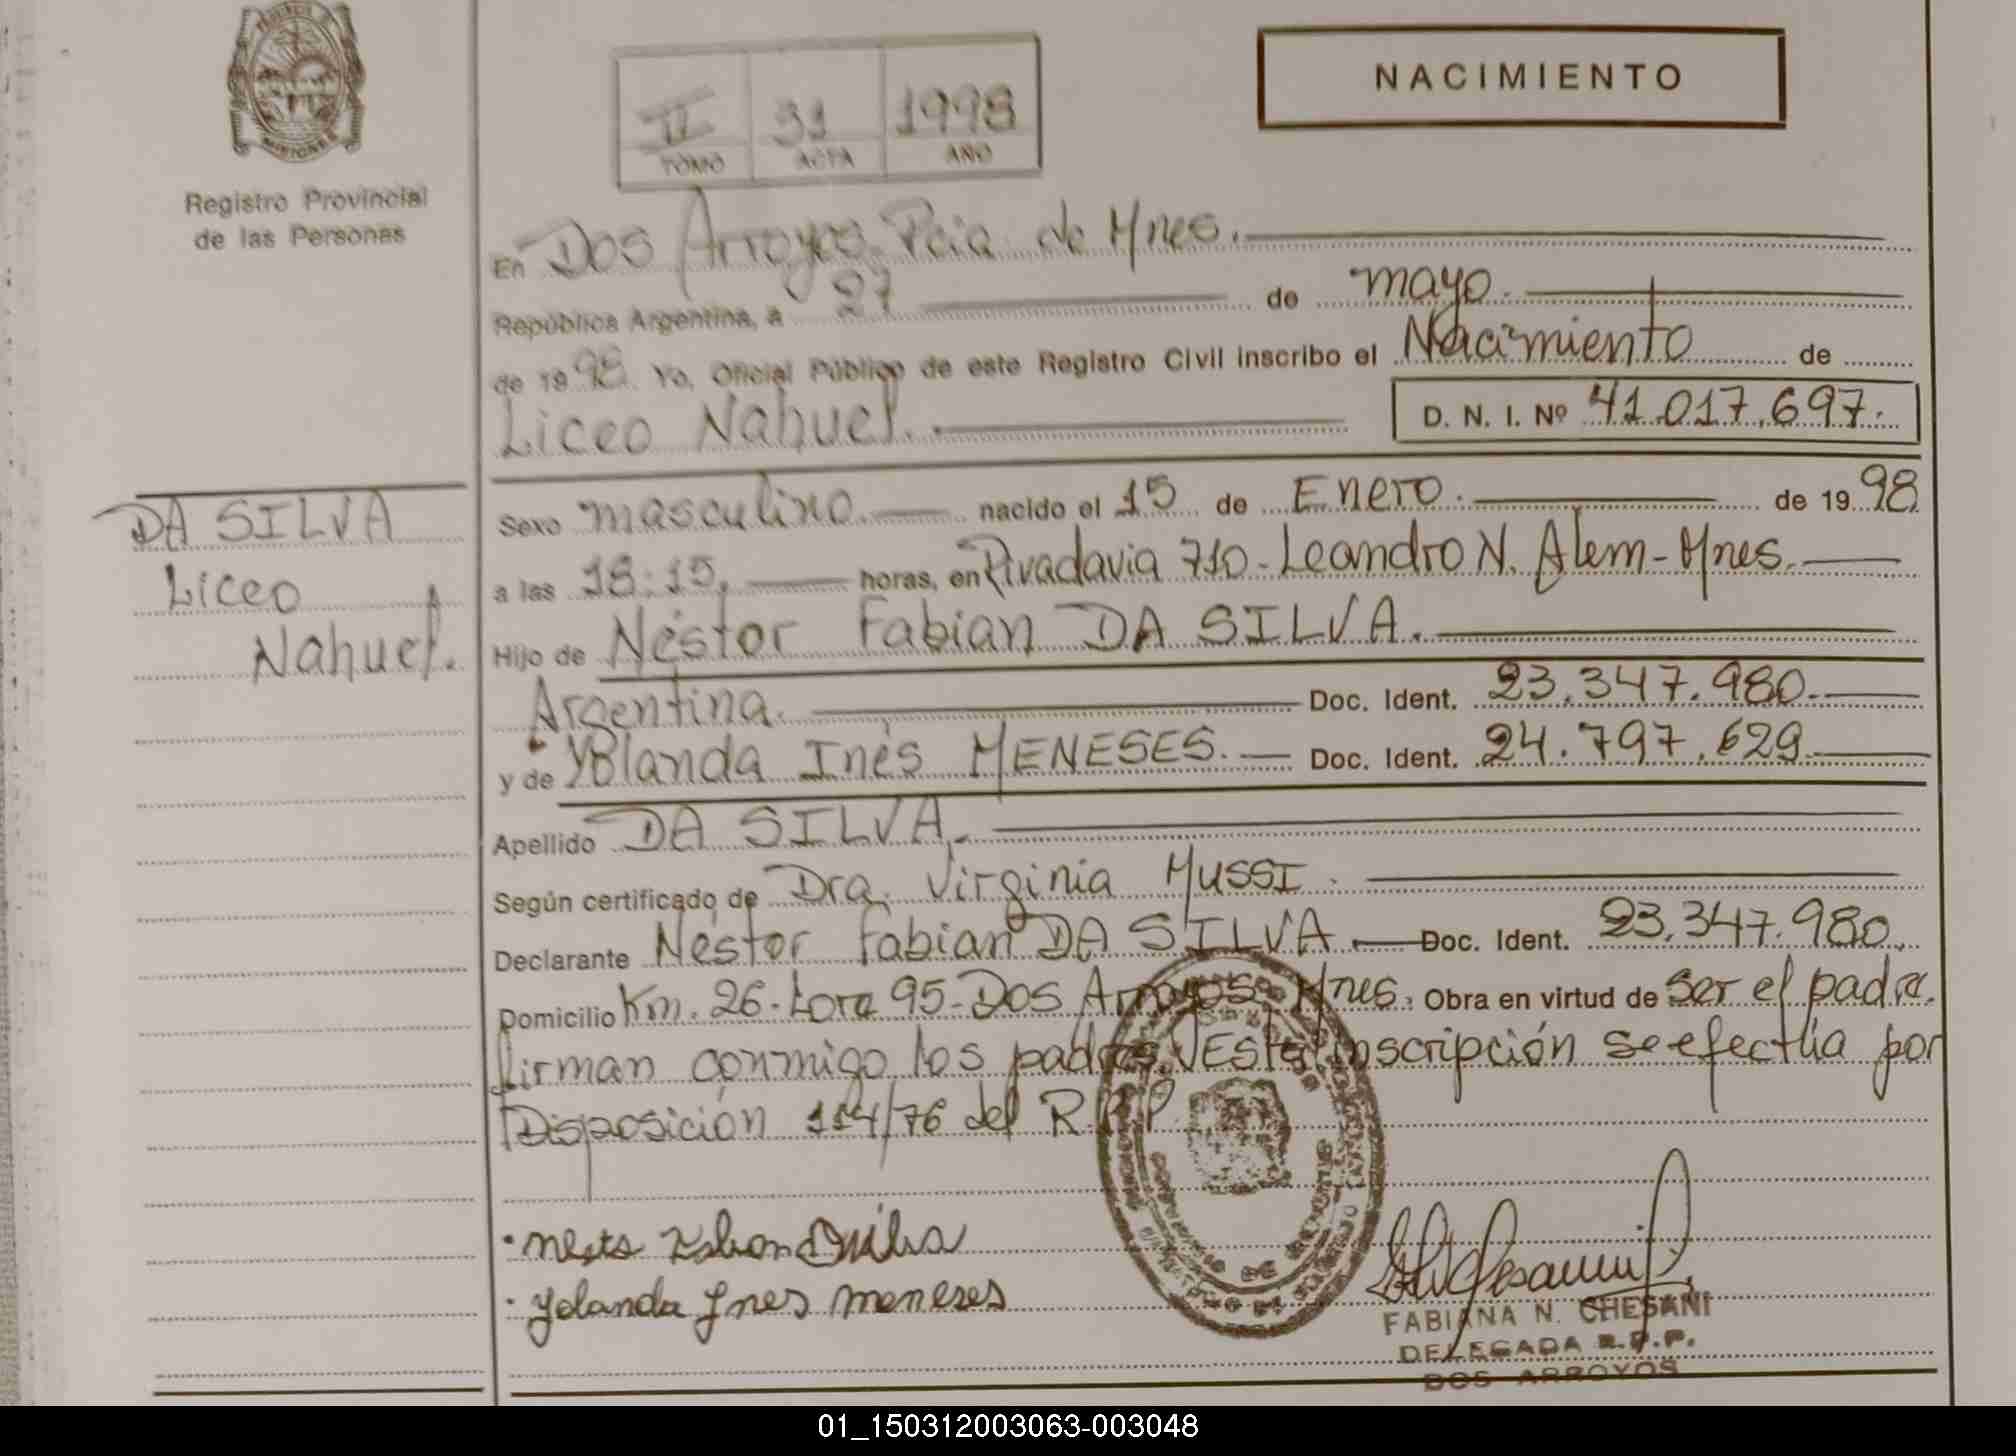 NACIMIENTO
II 31 1998
TOMO ACTA AÑO
Registro Provincial
de las Personas
En Dos Arroyos. Pcia. de Mnes.
República Argentina, a 27 de mayo.
de 1998. Yo, Oficial Público de este Registro Civil inscribo el Nacimiento de
Liceo Nahuel.
D. N. I. Nº 41.017.697.
DA SILVA
Liceo
Nahuel.
Sexo masculino. nacido el 15 de Enero. de 1998
a las 18:15. horas, en Rivadavia 710- Leandro N. Alem - Mnes.
Hijo de Néstor Fabian DA SILVA.
Argentina. Doc. Ident. 23.347.980.
y de Yolanda Inés MENESES. Doc. Ident. 24.797.629
Apellido DA SILVA.
Según certificado de Dra. Virginia MUSSI.
Declarante Néstor Fabian DA SILVA Doc. Ident. 23.347.980.
Domicilio Km. 26- Lote 95- Dos Arroyos- Mnes. Obra en virtud de ser el padre.
firman conmigo los padres. Esta inscripción se efectúa por
Disposición 114/76 del R.P.P
Yolanda Ines meneses
FABIANA N. CHESANI
DELEGADA R.P.P.
DOS ARROYOS
01_150312003063-003048